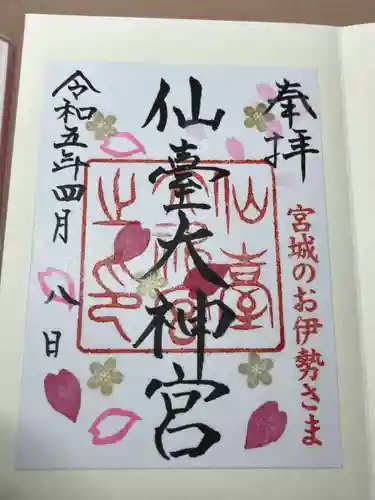 奉拝
宮城のお伊勢さま
仙臺大神宮
令和五年四月八日